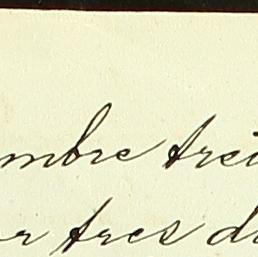 mbre trei
or tres di